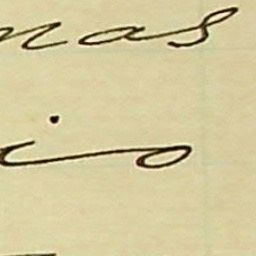 mas
io